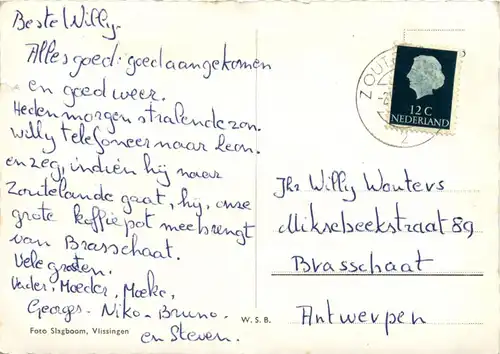 Beste Willy.
Alles goed: goed aangekomen
en goed weer.
Heden morgen stralende zon.
Willy telefoneer naar Leon.
en zeg, indien hij naar
Zoutelande gaat, hij, onze
grote koffiepot meebrengt
van Brasschaat.
Vele groeten.
Vader, Moeder, Moeke,
Georges. Niko. Bruno.
en Steven.
Foto Slagboom, Vlissingen
W. S. B.
ZOUT
12 C
NEDERLAND
2
Jhr Willy Wouters
Mikselbeekstraat 89
Brasschaat
Antwerpen